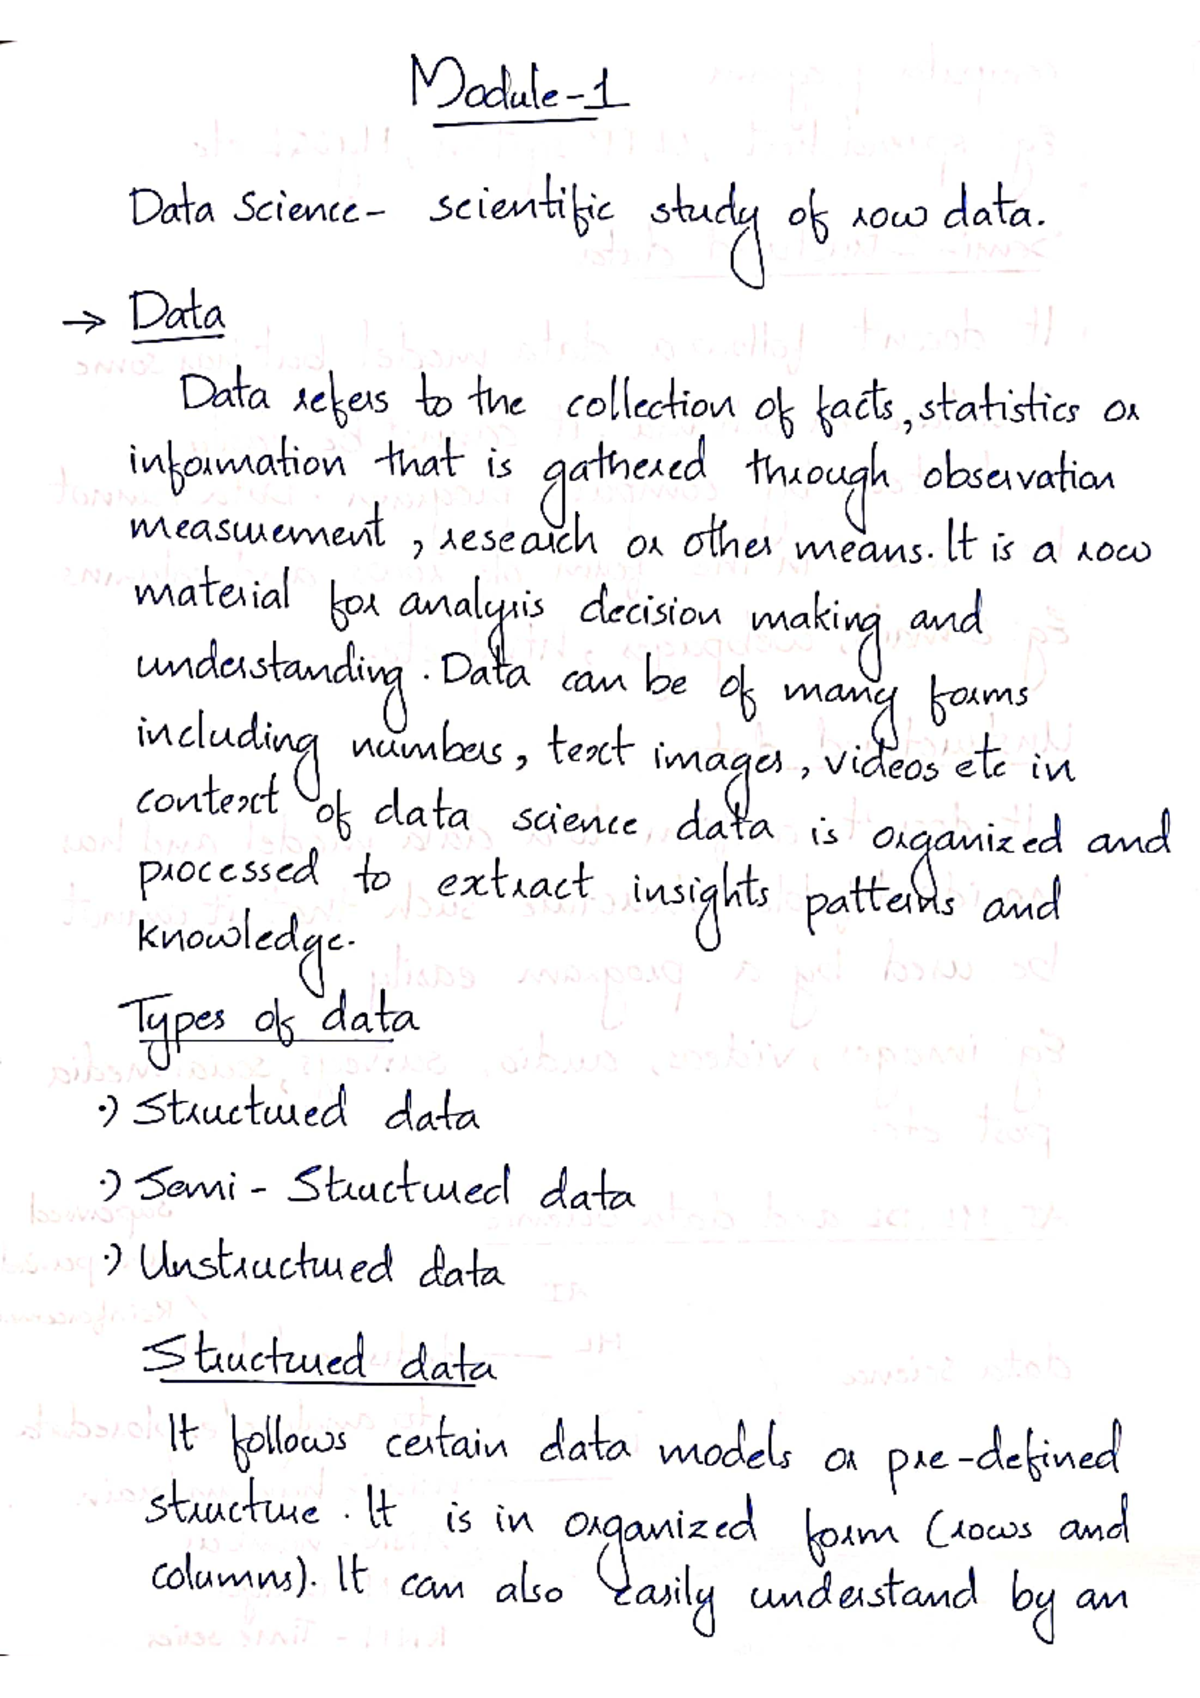 Module-1
Data Science- scientific study of row data.
→ Data
Data refers to the collection of facts, statistics or
information that is gathered through observation
measurement, research or other means. It is a row
material for analysis decision making and
understanding. Data can be of many forms
including numbers, text images, videos etc in
context of data science data is organized and
processed to extract insights patterns and
knowledge.
Types of data
·) Structured data
·) Semi - Structured data
·) Unstructured data
Structured data
It follows certain data models or pre-defined
structure. It is in organized form (rows and
columns). It can also easily understand by an